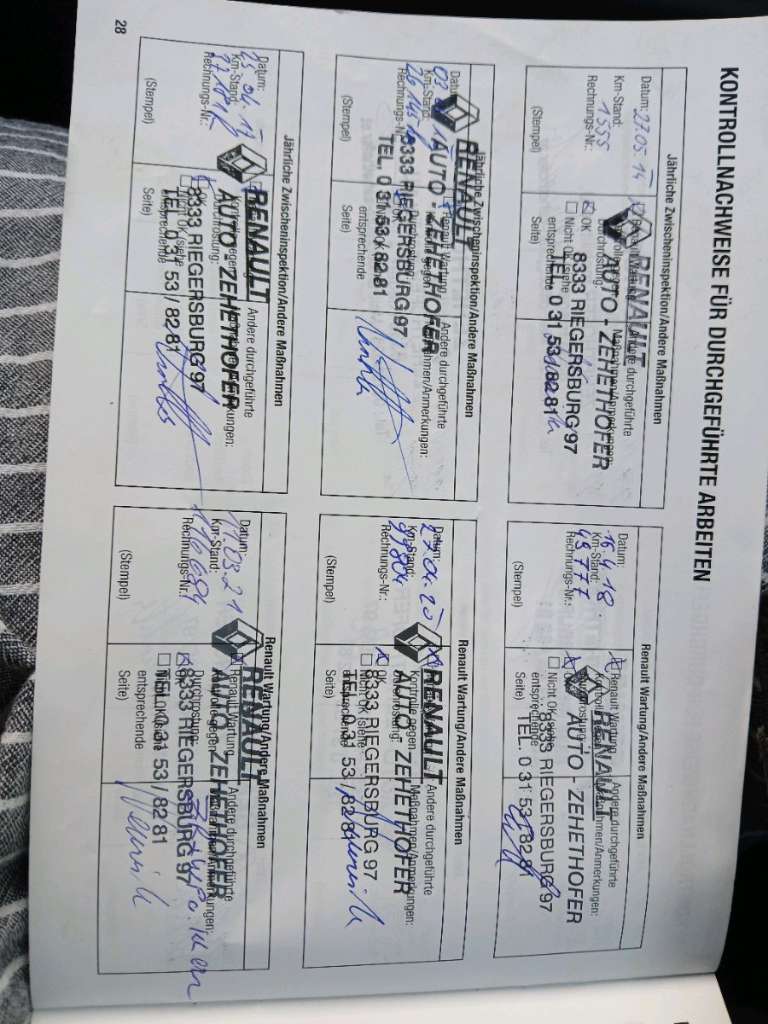 KONTROLLNACHWEISE FÜR DURCHGEFÜHRTE ARBEITEN
Jährliche Zwischeninspektion/Andere Maßnahmen
Datum: 27.05.14
Km-Stand: 1555
Rechnungs-Nr.:
(Stempel)
Durchrostung:
OK
Nicht OK (siehe
entsprechende
Seite)
Andere durchgeführte
Maßnahmen/Anmerkungen:
RENAULT
AUTO - ZEHETHOFER
8333 RIEGERSBURG 97
TEL. 0 31 53 / 82 81
Renault Wartung/Andere Maßnahmen
Datum:
16.4.18
Km-Stand:
45777
Rechnungs-Nr.:
(Stempel)
Renault Wartung
Nicht OK (siehe
entsprechende
Seite)
Andere durchgeführte
Maßnahmen/Anmerkungen:
RENAULT
AUTO - ZEHETHOFER
8333 RIEGERSBURG 97
TEL. 0 31 53 / 82 81
Jährliche Zwischeninspektion/Andere Maßnahmen
Datum:
Km-Stand:
Rechnungs-Nr.:
(Stempel)
Renault Wartung
entsprechende
Seite)
Andere durchgeführte
Maßnahmen/Anmerkungen:
RENAULT
AUTO - ZEHETHOFER
8333 RIEGERSBURG 97
TEL. 0 31 53 / 82 81
Renault Wartung/Andere Maßnahmen
Datum:
27.04.20
Km-Stand:
99804
Rechnungs-Nr.:
(Stempel)
Kontrolle gegen
Durchrostung:
OK
Nicht OK (siehe
entsprechende
Seite)
Andere durchgeführte
Maßnahmen/Anmerkungen:
RENAULT
AUTO - ZEHETHOFER
8333 RIEGERSBURG 97
TEL. 0 31 53 / 82 81
Jährliche Zwischeninspektion/Andere Maßnahmen
Datum:
Km-Stand:
Rechnungs-Nr.:
(Stempel)
Durchrostung:
OK
Nicht OK (siehe
entsprechende
Seite)
Andere durchgeführte
Maßnahmen/Anmerkungen:
RENAULT
AUTO - ZEHETHOFER
8333 RIEGERSBURG 97
TEL. 0 31 53 / 82 81
Renault Wartung/Andere Maßnahmen
Datum:
11.03.21
Km-Stand:
116684
Rechnungs-Nr.:
(Stempel)
Renault Wartung
Durchrostung:
entsprechende
Seite)
Andere durchgeführte
Maßnahmen/Anmerkungen:
RENAULT
AUTO - ZEHETHOFER
8333 RIEGERSBURG 97
TEL. 0 31 53 / 82 81
28